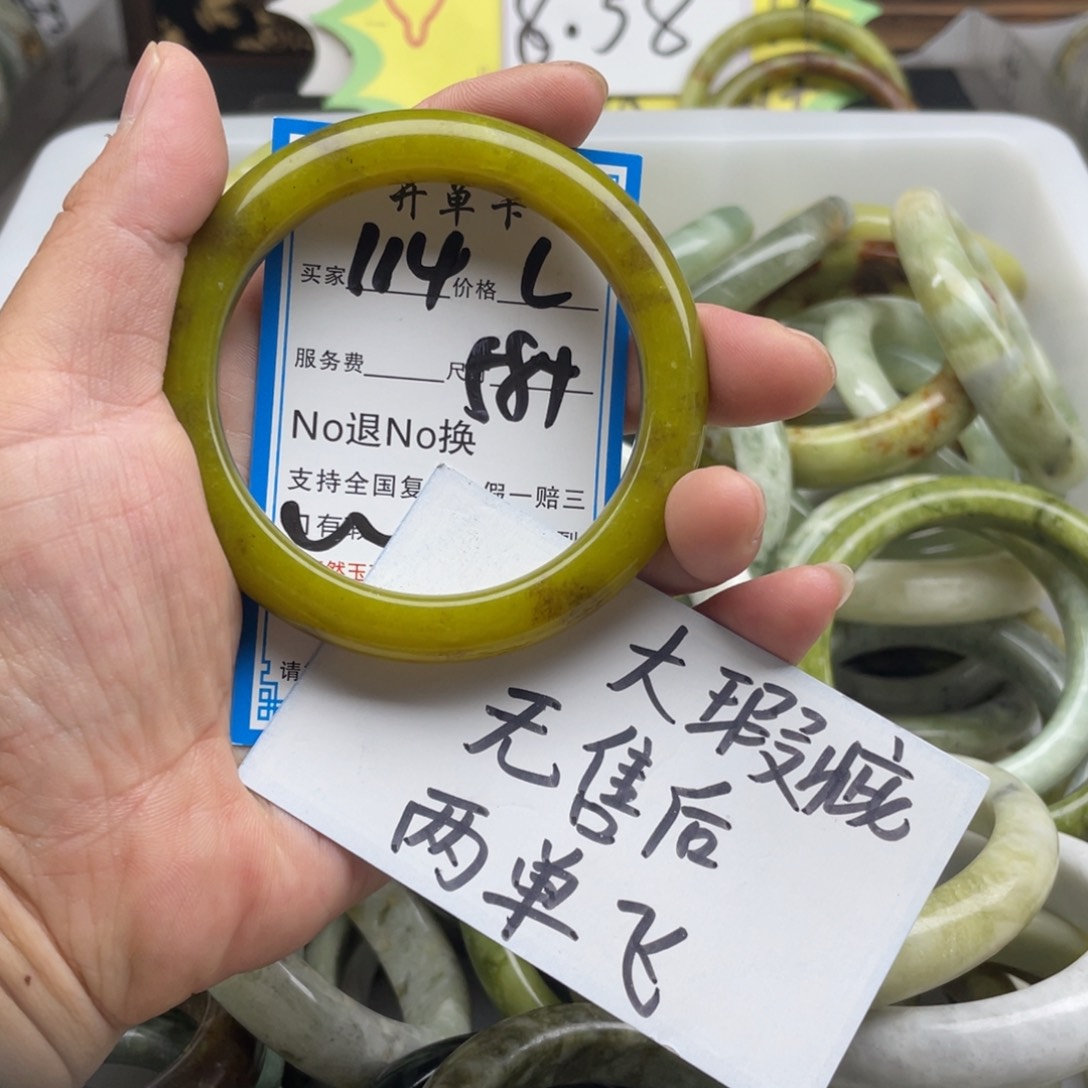 8.58
开单卡
买家 114 价格 L
服务费 尺 584
No退No换
支持全国复 假一赔三
有
然玉
请
大瑕疵
无售后
两单飞